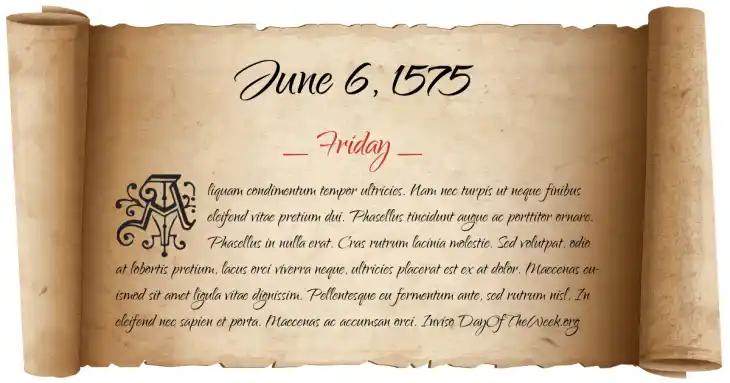 June 6, 1575
_ Friday _
Aliquam condimentum tempor ultricies. Nam nec turpis ut neque finibus
eleifend vitae pretium dui. Phasellus tincidunt augue ac porttitor ornare.
Phasellus in nulla erat. Cras rutrum lacinia molestie. Sed volutpat, odio
at lobortis pretium, lacus orci viverra neque, ultricies placerat est ex at dolor. Maecenas eu-
ismod sit amet ligula vitae dignissim. Pellentesque eu fermentum ante, sed rutrum nisl. In
eleifend nec sapien et porta. Maecenas ac accumsan orci. Inviso DayOfTheWeek.org